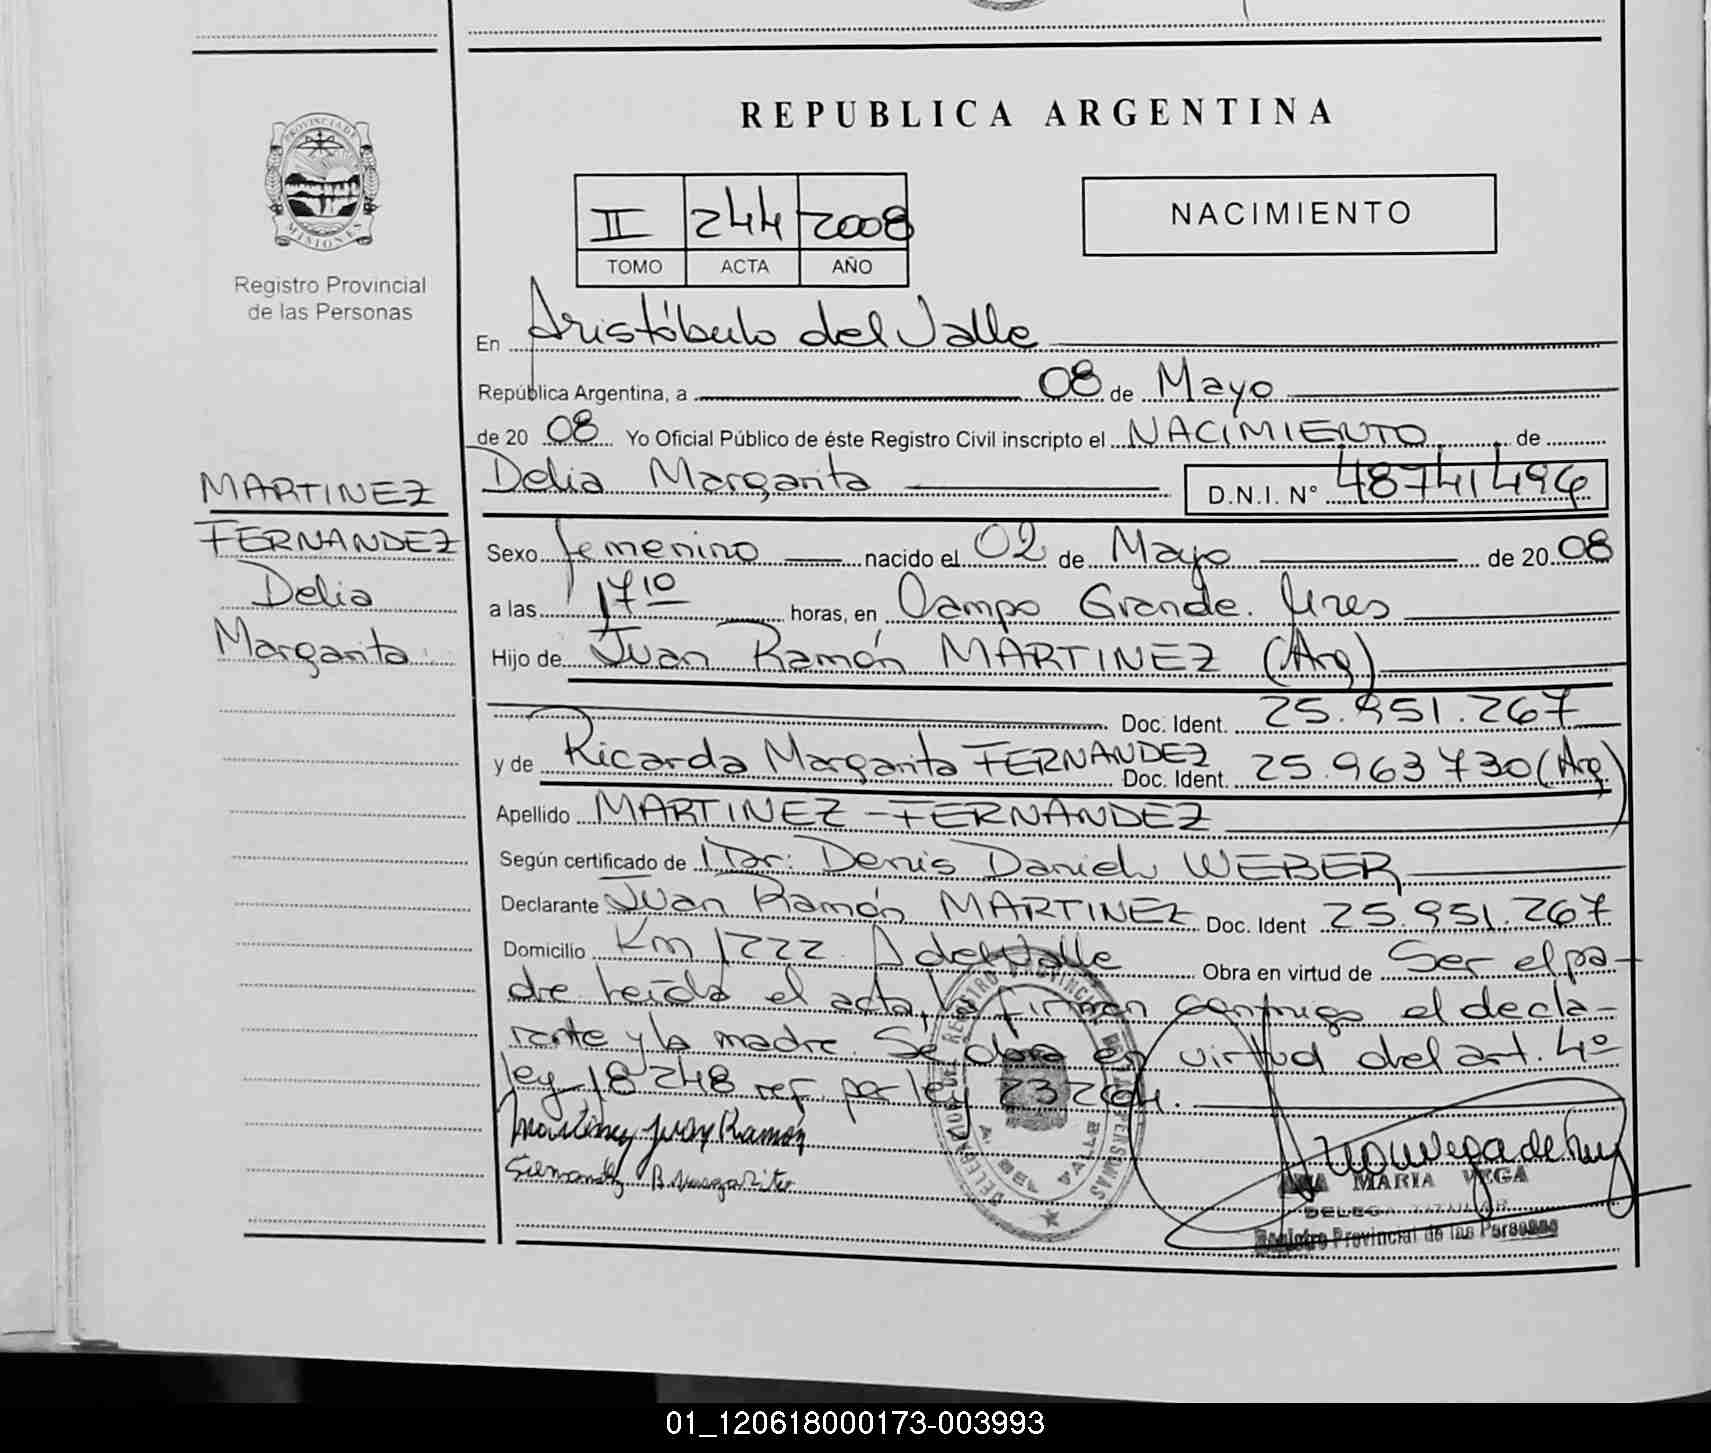 REPUBLICA ARGENTINA
PROVINCIA DE MISIONES
Registro Provincial
de las Personas
II 244 2008
TOMO ACTA AÑO
NACIMIENTO
En Aristóbulo del Valle
República Argentina, a 08 de Mayo
de 20 08 Yo Oficial Público de éste Registro Civil inscripto el NACIMIENTO de
Delia Margarita D.N.I. Nº 48741496
MARTINEZ
FERNANDEZ
Delia
Margarita
Sexo femenino nacido el 02 de Mayo de 20 08
a las 17 10 horas, en Campo Grande. Mnes
Hijo de Juan Ramón MARTINEZ (Arg)
Doc. Ident. 25.951.267
y de Ricarda Margarita FERNANDEZ Doc. Ident. 25.963730 (Arg)
Apellido MARTINEZ - FERNANDEZ
Según certificado de Dr: Denis Daniel WEBER
Declarante Juan Ramón MARTINEZ Doc. Ident 25.951.267
Domicilio Km 1222 A del Valle Obra en virtud de Ser el pa-
dre. Leída el acta, la firman conmigo el decla-
rante y la madre. Se obra en virtud del art. 4º
ley 18248 ref. por ley 23264.
Martinez Juan Ramon
ANA MARIA VEGA
DELEGADA TITULAR
Registro Provincial de las Personas
01_120618000173-003993